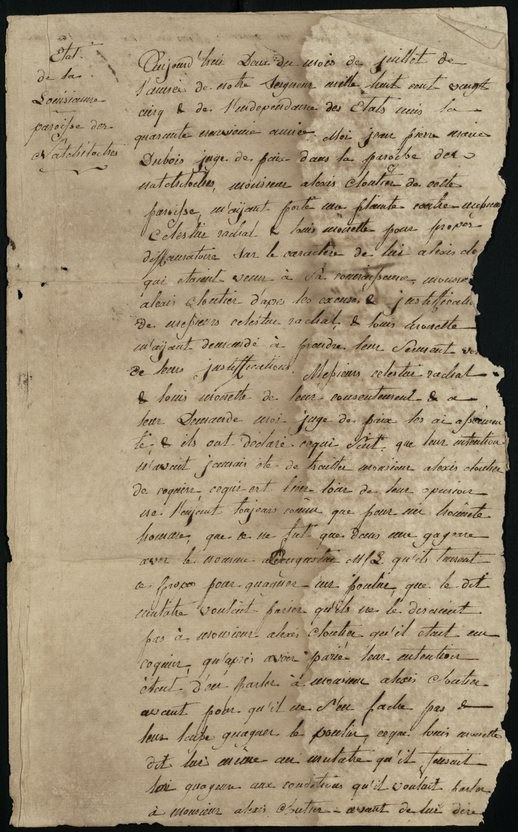 Etat
de la
Louisianne
paroisse des
Natchitoches
Aujourd'huie Deux du mois de juillet de
l'année de notre Seigneur mille huit cent vengt
cinq & de l'independance des Etats unis la
quarante neuvieme année, Moi jean pierre marie
Dubois juge de paix dans la paroisse des
natchitoches, monsieur alexis cloutier de cette
paroisse m'ayant porté une plainte contre messieurs
Celestin rachal & louis monette pour propos
diffamatoire sur le caractère de lui alexis clo
qui etaient venu à sa connaissance, monsieur
alexis cloutier d'apres les excuses & justificatio
de messieurs celestin rachal & louis monette
m'ayant demandé à prendre leur serment
de leurs justification. Messieurs celestin rachal
& louis monette de leur consentement & a
leur Demande moi juge de paix les ai assermen
té, & ils ont declaré ce qui suit, que leur intention
n'avait jamais été de traitter monsieur alexis cloutier
de coquin, ce qui est bien loin de leur opinion
ne l'ayant toujours connu que pour un honnete
homme, que ce ne fut que dans une gageure
avec le nommé qu'ils
ce pour gagner un poulin, que le dit
mulatre voulait parier qu'ils ne le diroient
pas à monsieur alexis cloutier qu'il etait un
coquin, qu'après avoir parié leur intention
étant d'en parler à monsieur alexis cloutier
avant pour qu'il ne s'en fache pas &
leur faire gagner le poulin, ce que louis monette
dit lui même au mulatre qu'il
lui gagerai aux conditions qu'il voulait parler
à monsieur alexis cloutier avant de lui dire